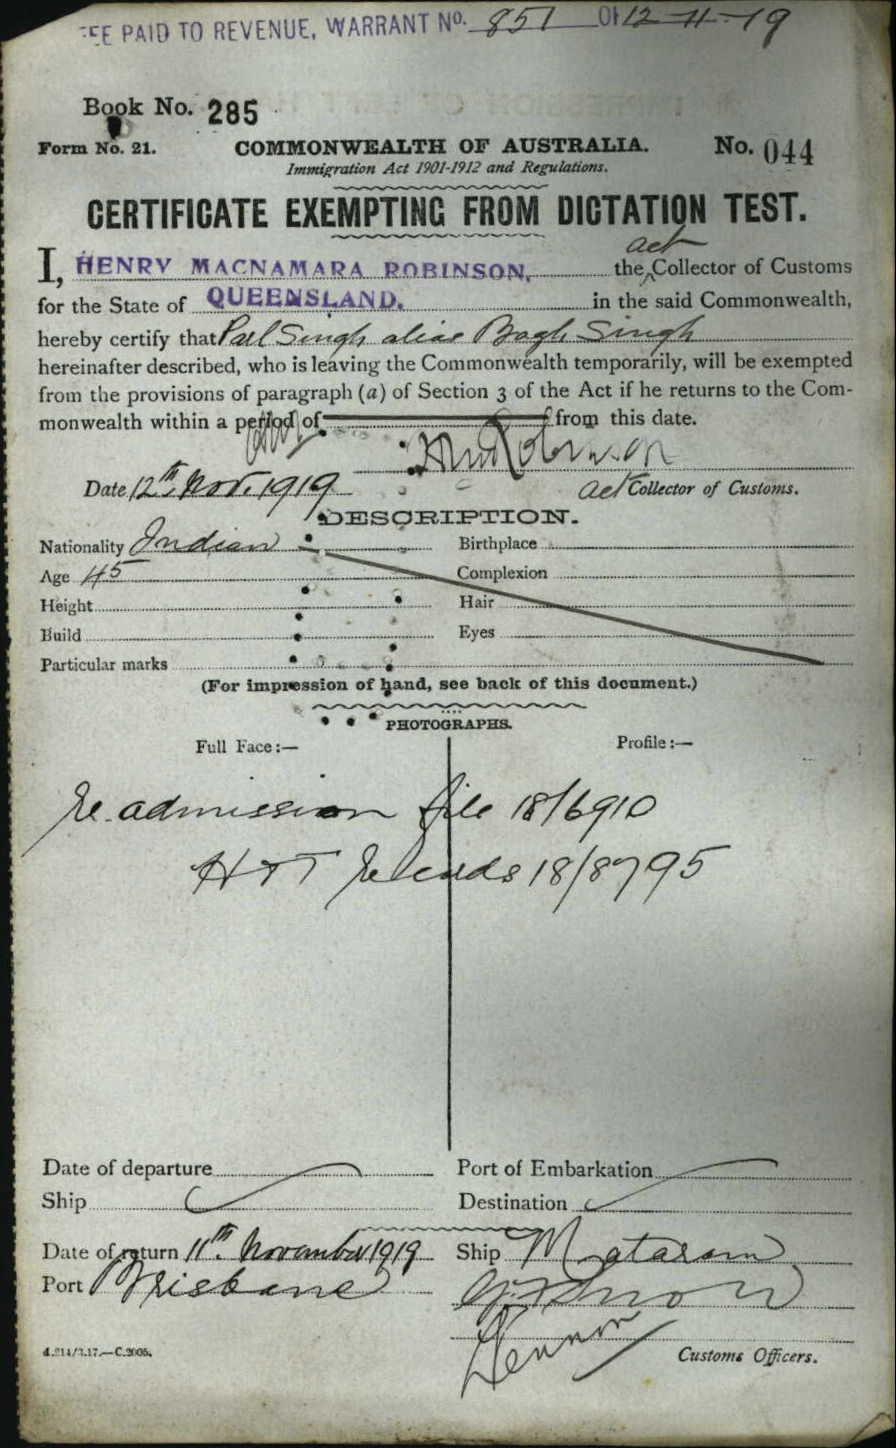 FEE PAID TO REVENUE, WARRANT No. 851 OF 12-11-19
Book No. 285
Form No. 21.
COMMONWEALTH OF AUSTRALIA.
No. 044
Immigration Act 1901-1912 and Regulations.
CERTIFICATE EXEMPTING FROM DICTATION TEST.
act
I, HENRY MACNAMARA ROBINSON, the Collector of Customs
for the State of QUEENSLAND. in the said Commonwealth,
hereby certify that Pal Singh alias Bagh Singh
hereinafter described, who is leaving the Commonwealth temporarily, will be exempted
from the provisions of paragraph (a) of Section 3 of the Act if he returns to the Com-
monwealth within a period of from this date.
HM Robinson
Date 12th. Nov. 1919
Act Collector of Customs.
DESCRIPTION.
Nationality Indian Birthplace
Age 45 Complexion
Height Hair
Build Eyes
Particular marks
(For impression of hand, see back of this document.)
PHOTOGRAPHS.
Full Face:— Profile:—
Re. admission file 18/6910
H & T Records 18/8795
Date of departure Port of Embarkation
Ship Destination
Date of return 11th. November 1919 Ship Mataram
Port Brisbane
Customs Officers.